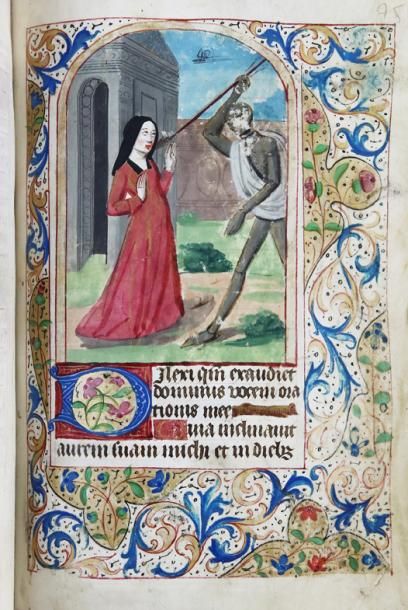 Dilexi qm̄ exaudiet
dominus vocem ora
tionis mee
Quia inclinauit
aurem suam michi et in diebꝫ